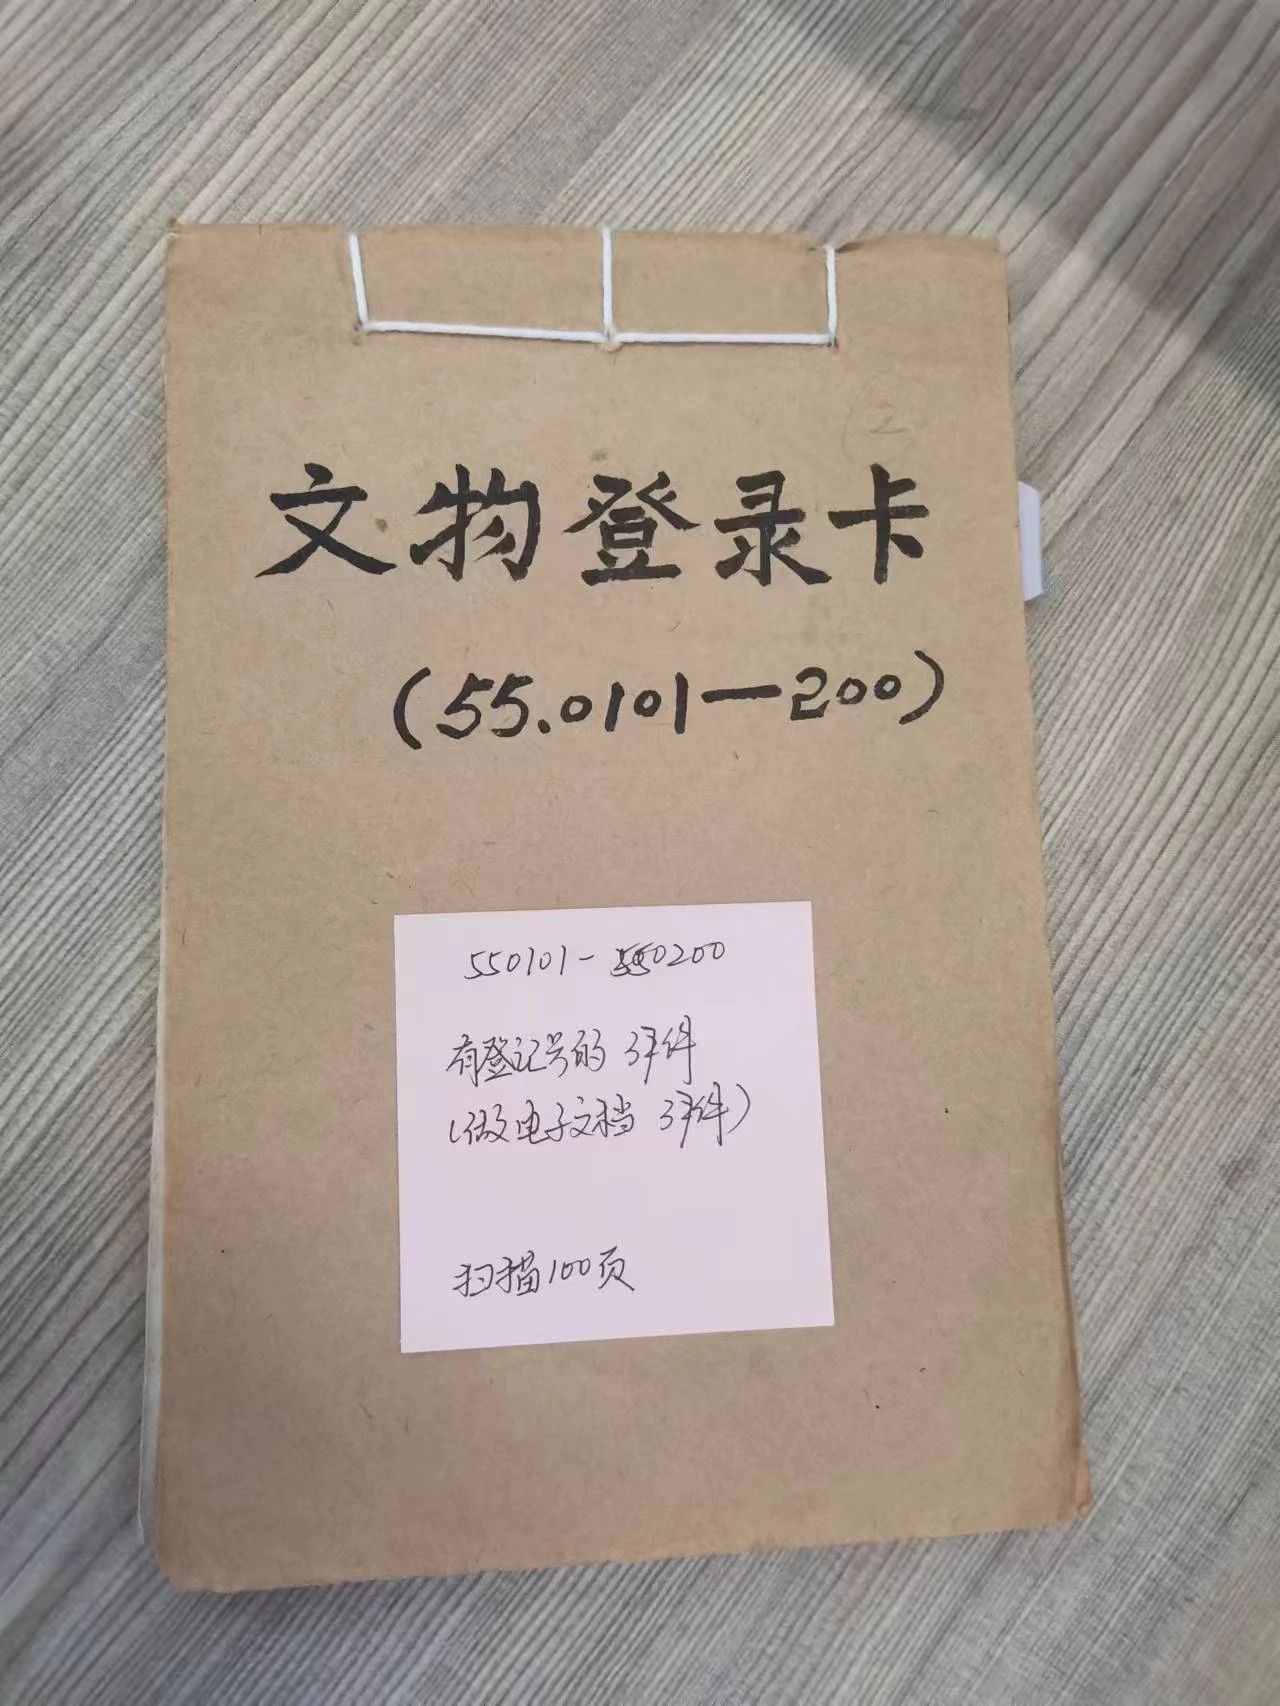 ②
文物登录卡
(55.0101—200)
550101-550200
有登记号的 3件
(做电子文档 3件)
扫描100页